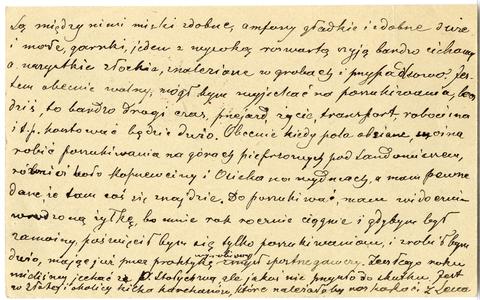 Są między nimi miski zdobne, amfory gładkie i zdobne duże
i małe, garnki, jeden z wysoką rozwartą szyją bardzo ciekawy
a wszystkie złockie, znalezione w grobach i przypadkowo. Jes-
tem obecnie wolny, mógł bym wyjechać na poszukiwania, lecz
dziś, to bardzo drogi czas, przejazd, życie, transport, robocizna
i t.p. kosztować będzie dużo. Obecnie kiedy pola obsiane, można
robić poszukiwania na górach pieprzowych pod Sandomierzem,
również koło i na wydmach, a mam pewne
dane, że tam coś się znajdzie. Do poszukiwać, mam widocznie
wrodzoną żyłkę, bo mnie rok rocznie ciągnie i gdybym był
zamożny, poświęcił bym się tylko poszukiwaniom, i zrobił bym
dużo, mając już przez praktykę wyrobioną spostrzegawczy. Zeszłego roku
mieliśmy jechać z P. ale jakoś nie przyszło do skutku. Jest
w Złotej i okolicy kilka kurhanów, które należało by rozkopać. Z